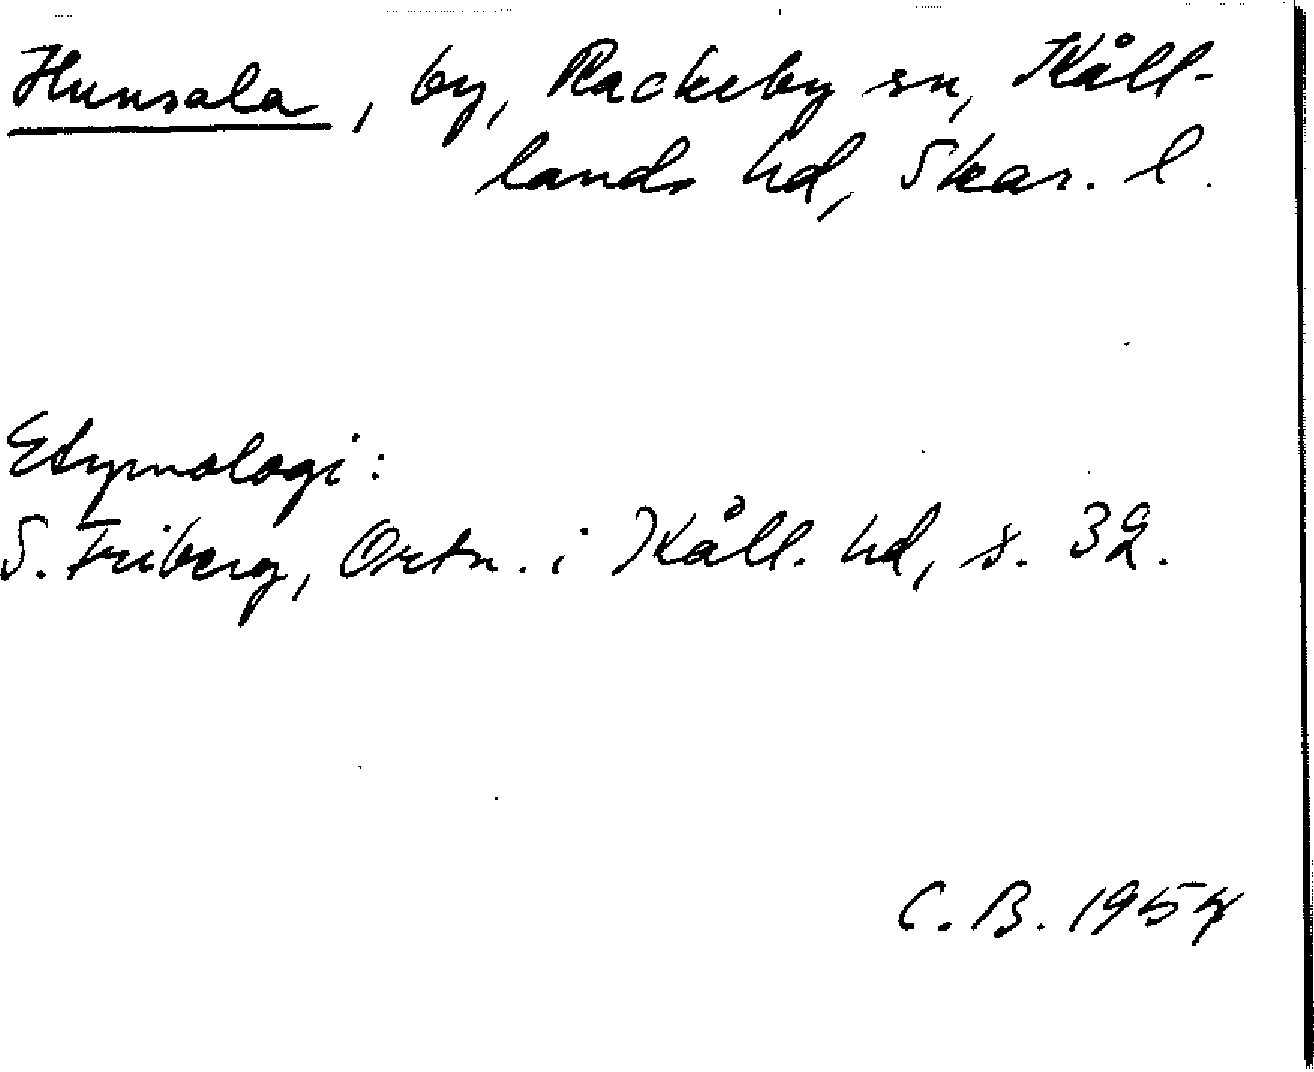 Hunsala, by, Rackeby sn, Kåll-
lands hd, Skar. l.
Etymologi:
S. Friberg, Ortn. i Kåll. hd, s. 32.
C. B. 1954